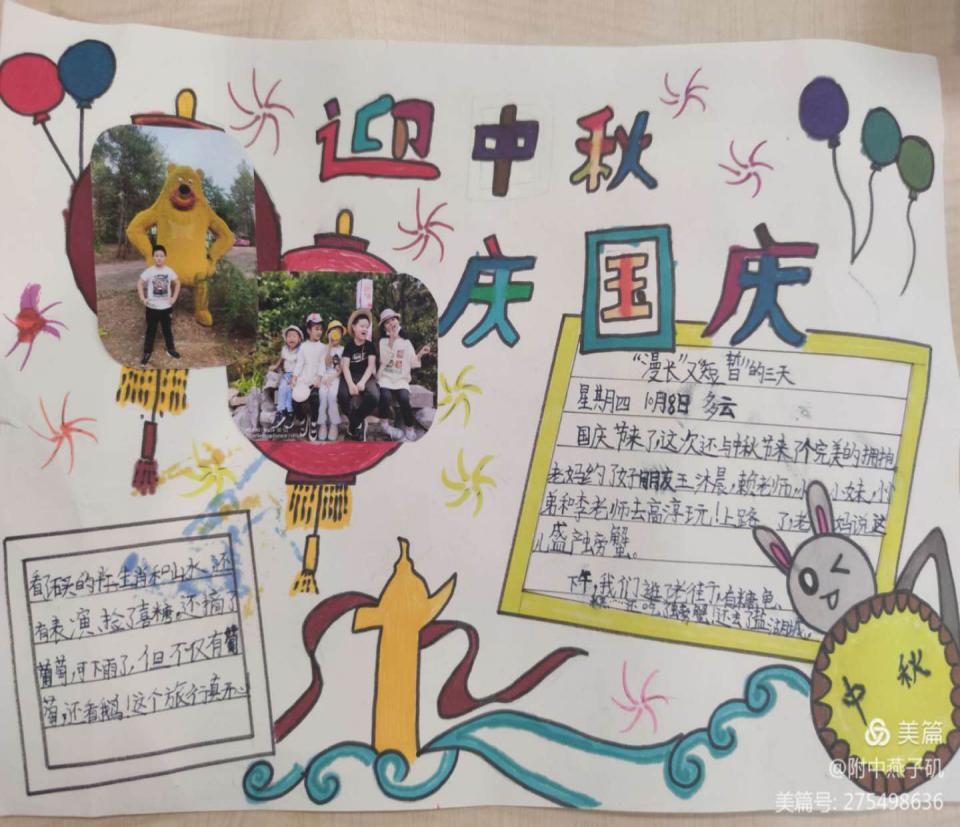 迎中秋
庆国庆
"漫长"又短暂"的三天
星期四 10月8日 多云
国庆节来了,这次还与中秋节来了个完美的拥抱
老妈约了好朋友王沐晨,赖老师,小 小妹,小
弟和李老师去高淳玩!上路 了,老 妈说这
儿盛产螃蟹。
下午,我们 进了老街,有糖
螃蟹!还去了
看了 的 生肖和山水,还
有表演,捡了喜糖,还摘了
葡萄,可下雨了,但不仅有葡
萄,还看 !这个旅行真开心
中秋
美篇
@附中燕子矶
美篇号: 275498636